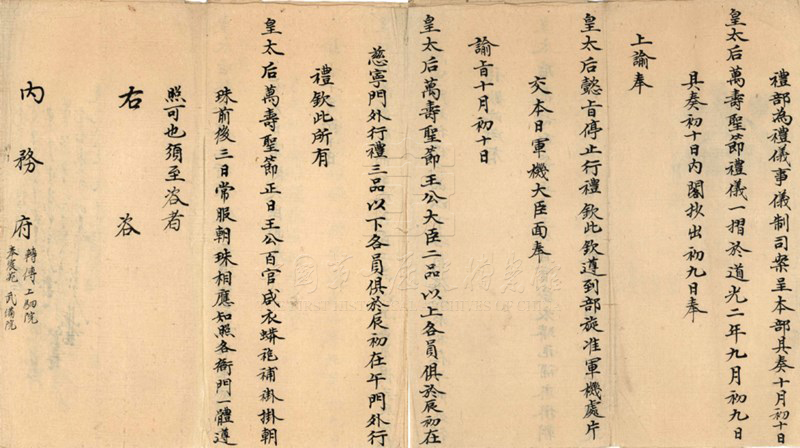 禮部為禮儀事儀制司案呈本部具奏十月初十日
皇太后萬壽聖節禮儀一摺於道光二年九月初九日
具奏初十日內閣抄出初九日奉
上諭奉
皇太后懿旨停止行禮欽此欽遵到部旋准軍機處片
交本日軍機大臣面奉
諭旨十月初十日
皇太后萬壽聖節王公大臣二品以上各員俱於辰初在
慈寧門外行禮三品以下各員俱於辰初在午門外行
禮欽此所有
皇太后萬壽聖節正日王公百官咸衣蟒袍補褂掛朝
珠前後三日常服朝珠相應知照各衙門一體遵
照可也須至咨者
右咨
內務府
轉傳上駟院
奉宸苑武備院